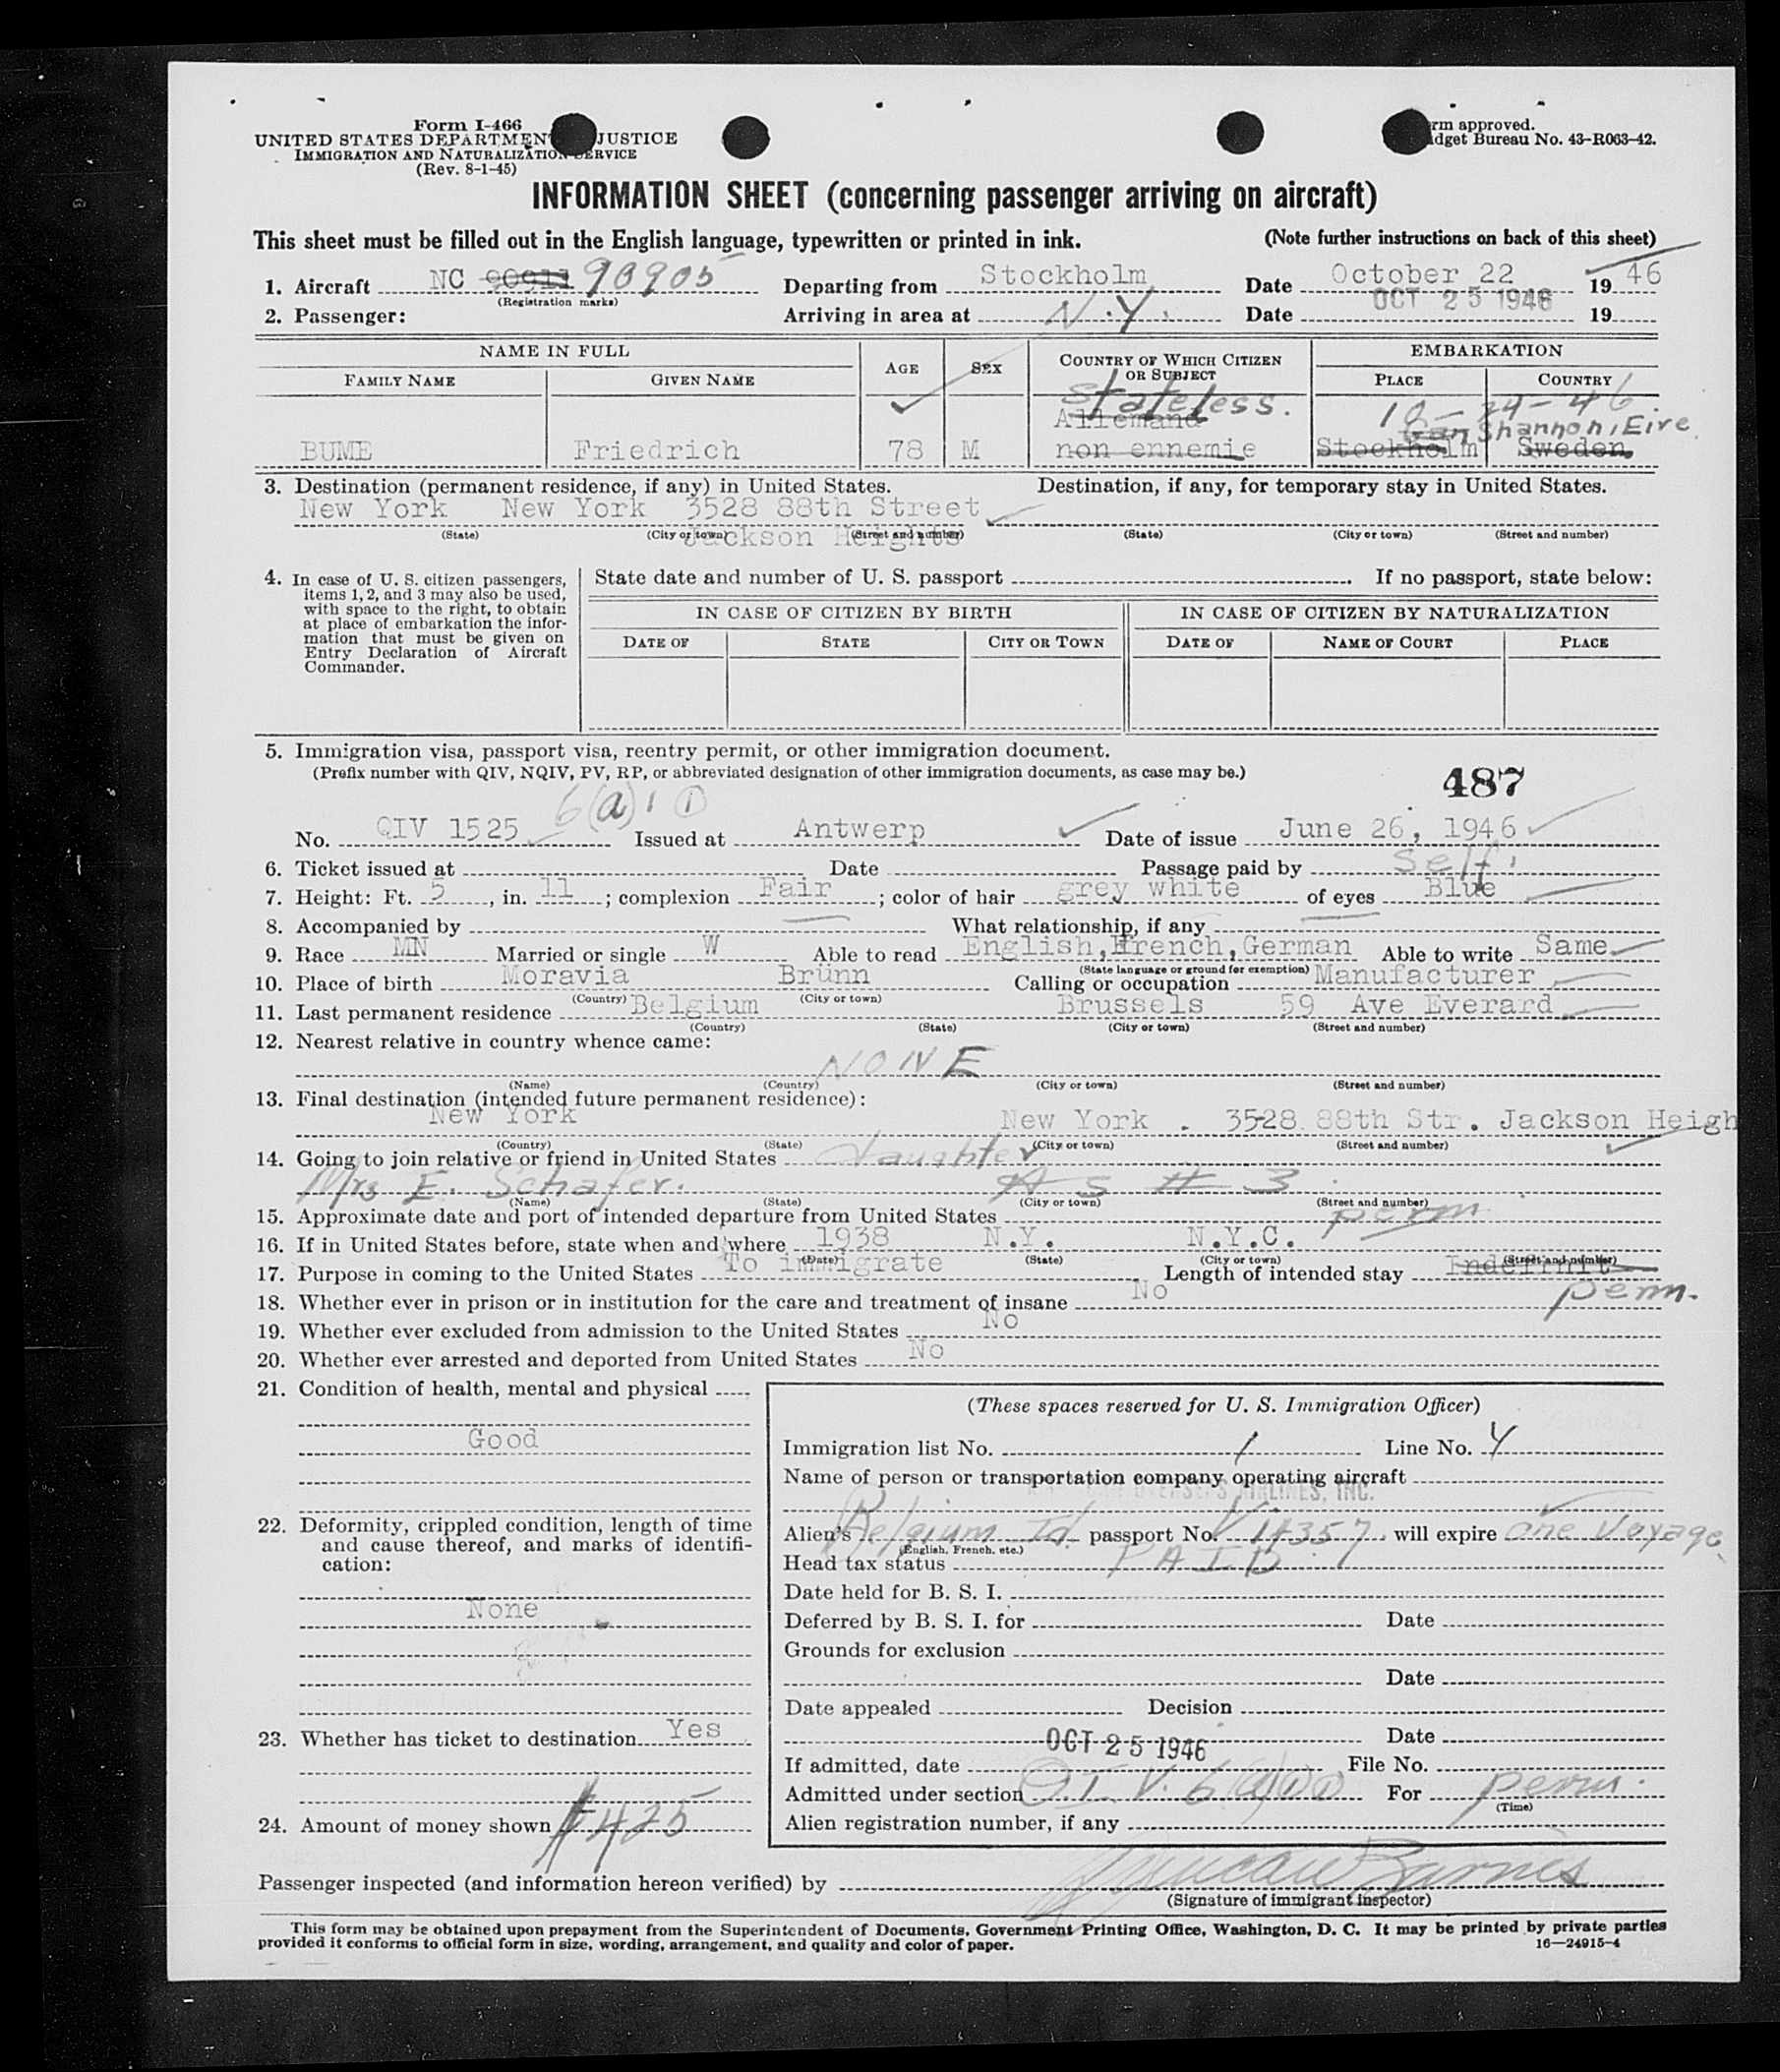 Form I-466
UNITED STATES DEPARTMENT JUSTICE
IMMIGRATION AND NATURALIZATION SERVICE
(Rev. 8-1-45)
rm approved.
dget Bureau No. 43-R063-42.
INFORMATION SHEET (concerning passenger arriving on aircraft)
This sheet must be filled out in the English language, typewritten or printed in ink. (Note further instructions on back of this sheet)
1. Aircraft NC 90911 90905 Departing from Stockholm Date October 22 1946
(Registration marks)
2. Passenger: Arriving in area at N.Y. Date OCT 25 1946 19
NAME IN FULL AGE SEX COUNTRY OF WHICH CITIZEN OR SUBJECT EMBARKATION
FAMILY NAME GIVEN NAME PLACE COUNTRY
stateless. 10-24-46
Allemand Shannon, Eire
BUME Friedrich 78 M non ennemie Stockholm Sweden
3. Destination (permanent residence, if any) in United States. Destination, if any, for temporary stay in United States.
New York New York 3528 88th Street
(State) (City or town) (Street and number) (State) (City or town) (Street and number)
Jackson Heights
4. In case of U. S. citizen passengers, items 1, 2, and 3 may also be used, with space to the right, to obtain at place of embarkation the information that must be given on Entry Declaration of Aircraft Commander.
State date and number of U. S. passport . If no passport, state below:
IN CASE OF CITIZEN BY BIRTH IN CASE OF CITIZEN BY NATURALIZATION
DATE OF STATE CITY OR TOWN DATE OF NAME OF COURT PLACE
5. Immigration visa, passport visa, reentry permit, or other immigration document.
(Prefix number with QIV, NQIV, PV, RP, or abbreviated designation of other immigration documents, as case may be.) 487
6(a)1 1
No. QIV 1525 Issued at Antwerp Date of issue June 26, 1946
6. Ticket issued at Date Passage paid by self.
7. Height: Ft. 5, in. 11; complexion Fair; color of hair grey white of eyes Blue
8. Accompanied by What relationship, if any
9. Race MN Married or single W Able to read English, French, German Able to write Same
(State language or ground for exemption)
10. Place of birth Moravia Brünn Calling or occupation Manufacturer
(Country) (City or town)
11. Last permanent residence Belgium Brussels 59 Ave Everard
(Country) (State) (City or town) (Street and number)
12. Nearest relative in country whence came:
NONE
(Name) (Country) (City or town) (Street and number)
13. Final destination (intended future permanent residence):
New York New York . 3528 88th Str. Jackson Heigh
(Country) (State) (City or town) (Street and number)
14. Going to join relative or friend in United States daughter
Mrs E. Schafer. As # 3
(Name) (State) (City or town) (Street and number)
15. Approximate date and port of intended departure from United States perm
16. If in United States before, state when and where 1938 N.Y. N.Y.C.
(Date) (State) (City or town) (Street and number)
17. Purpose in coming to the United States To immigrate Length of intended stay Indefinit perm.
18. Whether ever in prison or in institution for the care and treatment of insane No
19. Whether ever excluded from admission to the United States No
20. Whether ever arrested and deported from United States No
21. Condition of health, mental and physical
Good
22. Deformity, crippled condition, length of time and cause thereof, and marks of identification:
None
23. Whether has ticket to destination Yes
24. Amount of money shown $425
(These spaces reserved for U. S. Immigration Officer)
Immigration list No. 1 Line No. 4
Name of person or transportation company operating aircraft
OVERSEAS AIRLINES, INC.
Alien's Belgium Id. passport No. V14357 will expire one Voyage
(English, French, etc.)
Head tax status PAID
Date held for B. S. I.
Deferred by B. S. I. for Date
Grounds for exclusion
Date
Date appealed Decision
OCT 25 1946 Date
If admitted, date File No.
Admitted under section Q.I.V. 6(a)(1)(1) For perm.
(Time)
Alien registration number, if any
Passenger inspected (and information hereon verified) by Duncan Barnes
(Signature of immigrant inspector)
This form may be obtained upon prepayment from the Superintendent of Documents, Government Printing Office, Washington, D. C. It may be printed by private parties
provided it conforms to official form in size, wording, arrangement, and quality and color of paper. 16—24915-4